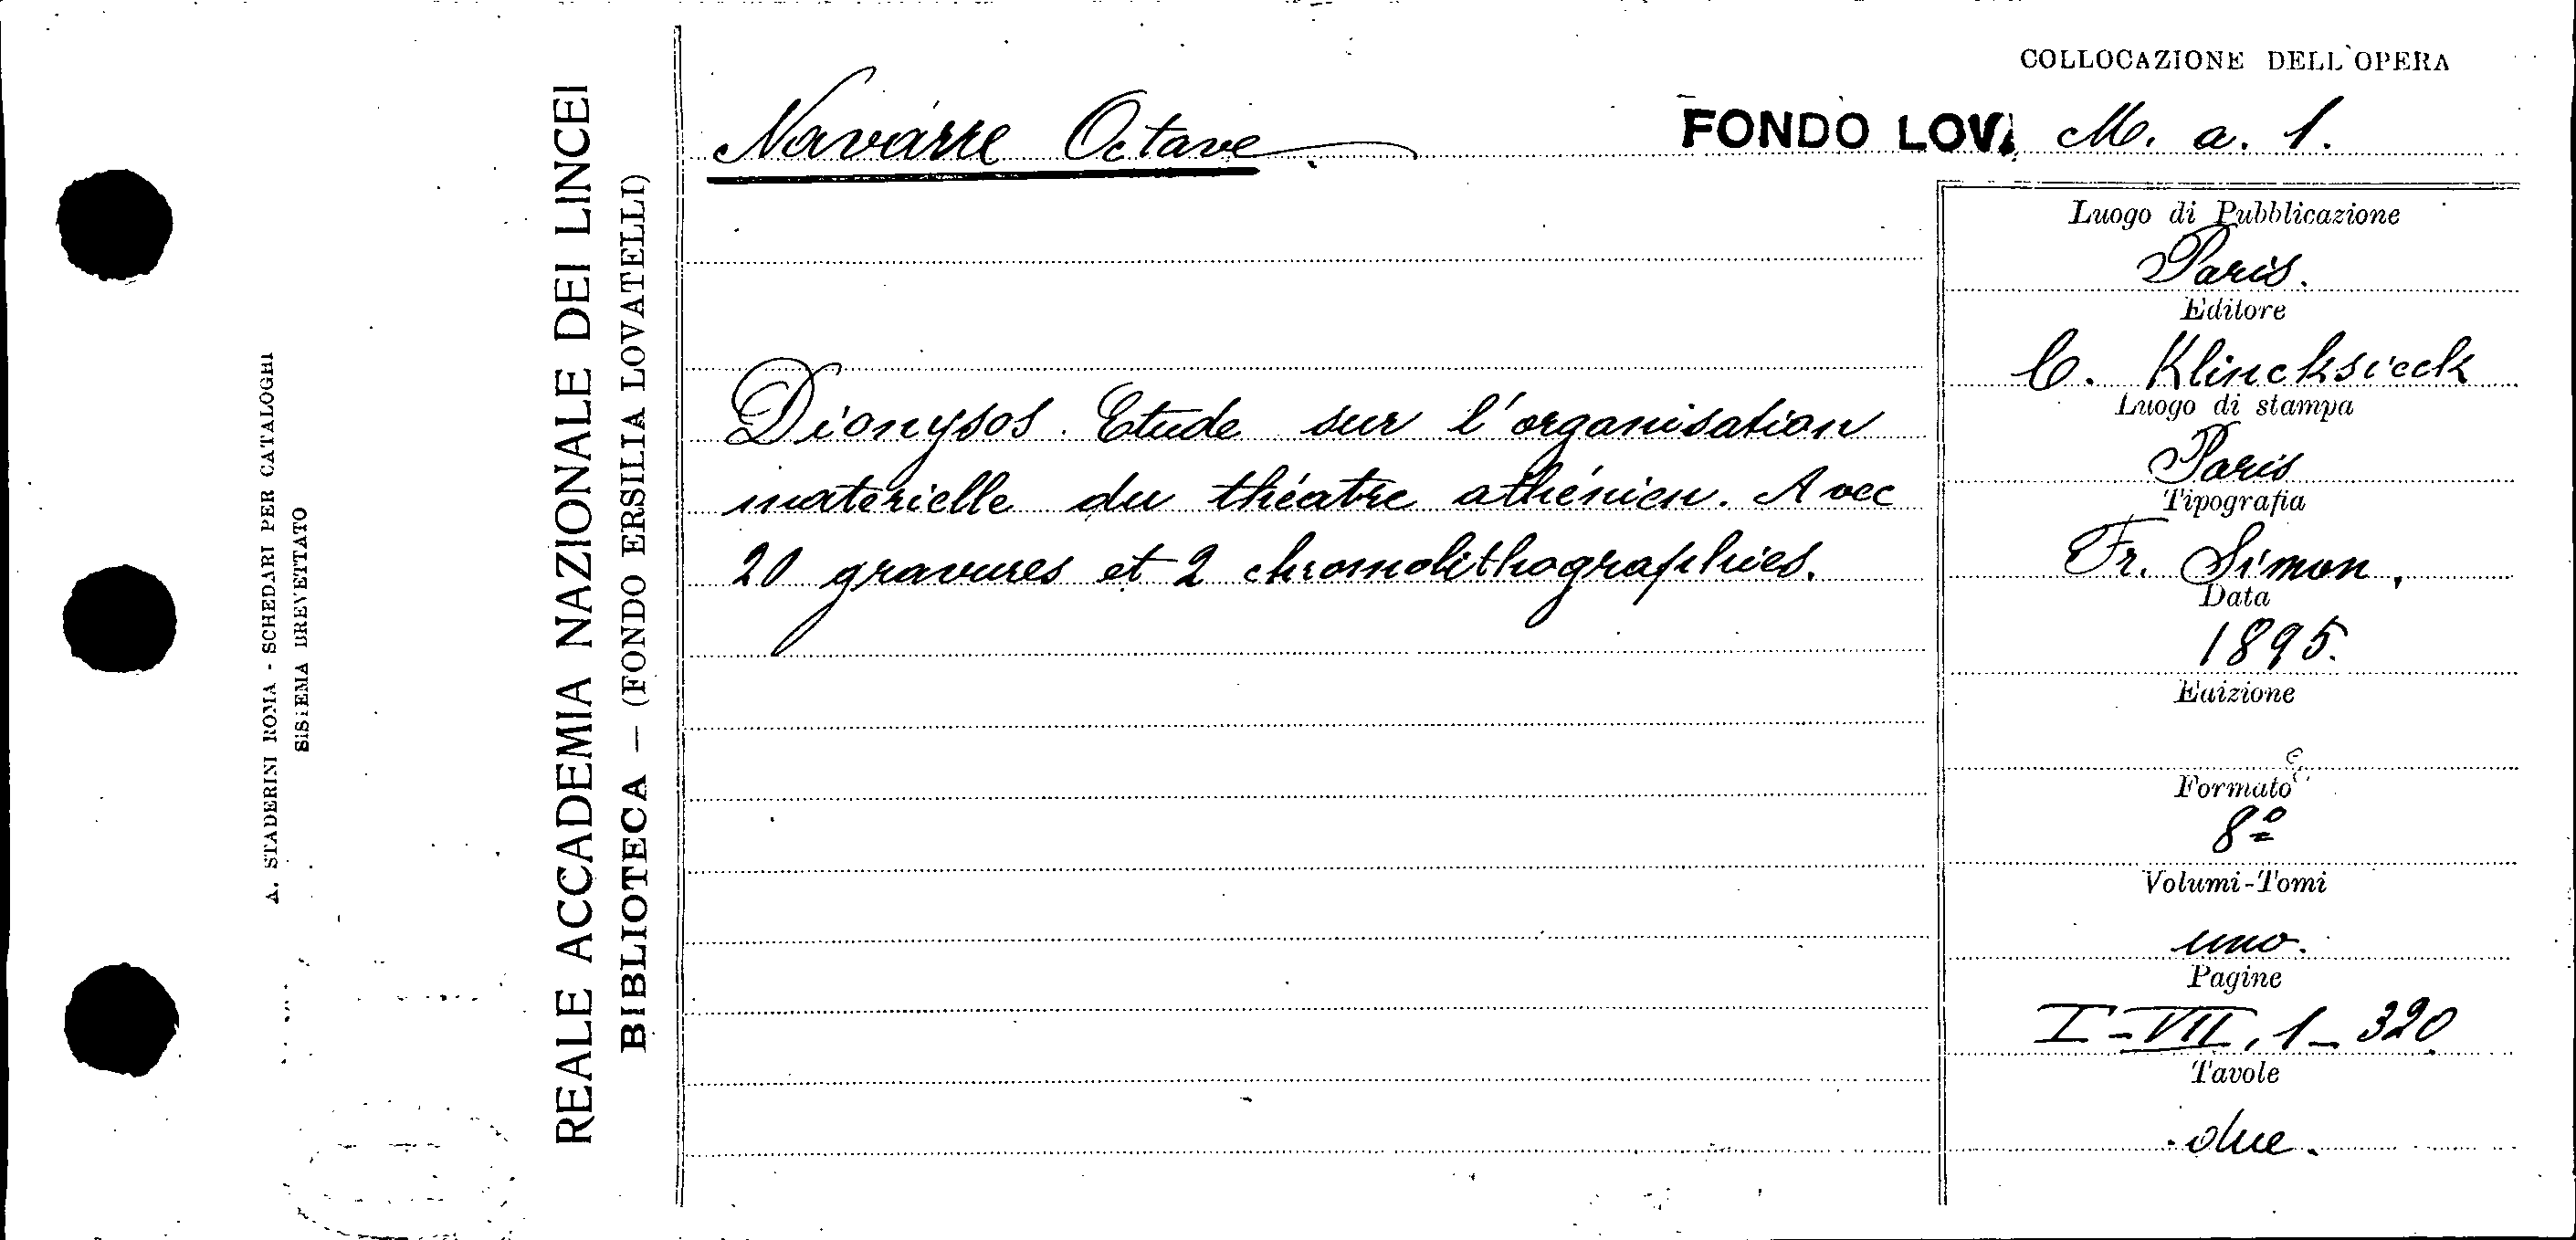 COLLOCAZIONE DELL'OPERA
Navarre Octave
FONDO LOV. M. a. 1.
Luogo di Pubblicazione
Paris.
Editore
C. Klincksieck
Luogo di stampa
Paris
Tipografia
Fr. Simon.
Data
1895.
Edizione
Formato
8º
Volumi-Tomi
uno.
Pagine
I-VII, 1-320
Tavole
due.
Dionysos. Etude sur l'organisation
matérielle du théatre athénien. Avec
20 gravures et 2 chromolithographies.
REALE ACCADEMIA NAZIONALE DEI LINCEI
BIBLIOTECA — (FONDO ERSILIA LOVATELLI)
A. STADERINI ROMA - SCHEDARI PER CATALOGHI
SISTEMA BREVETTATO